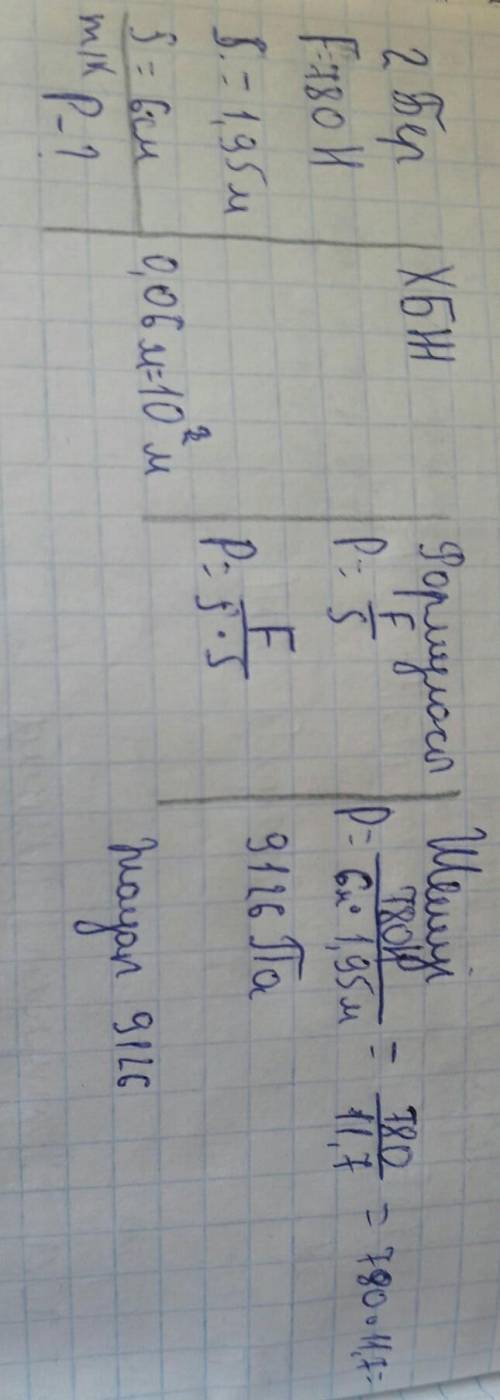 2 Бер
F=780 Н
S = 1,95 м
S = 6см
т/к P-?
ХБЖ
0,06 м = 10² м
Формуласы
P = F/S
P = F/S·S
Шешуі
P = 780Н/6м·1,95м = 780/11,7 = 780·11,7=
9126 Па
Жауап 9126